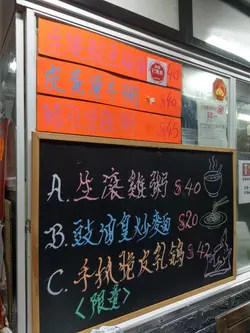 $40
皮蛋瘦肉粥 $40
$45
A. 生滾雞粥 $40
B. 豉油皇炒麵 $20
C. 手扒脆皮乳鴿 $42
<限量>